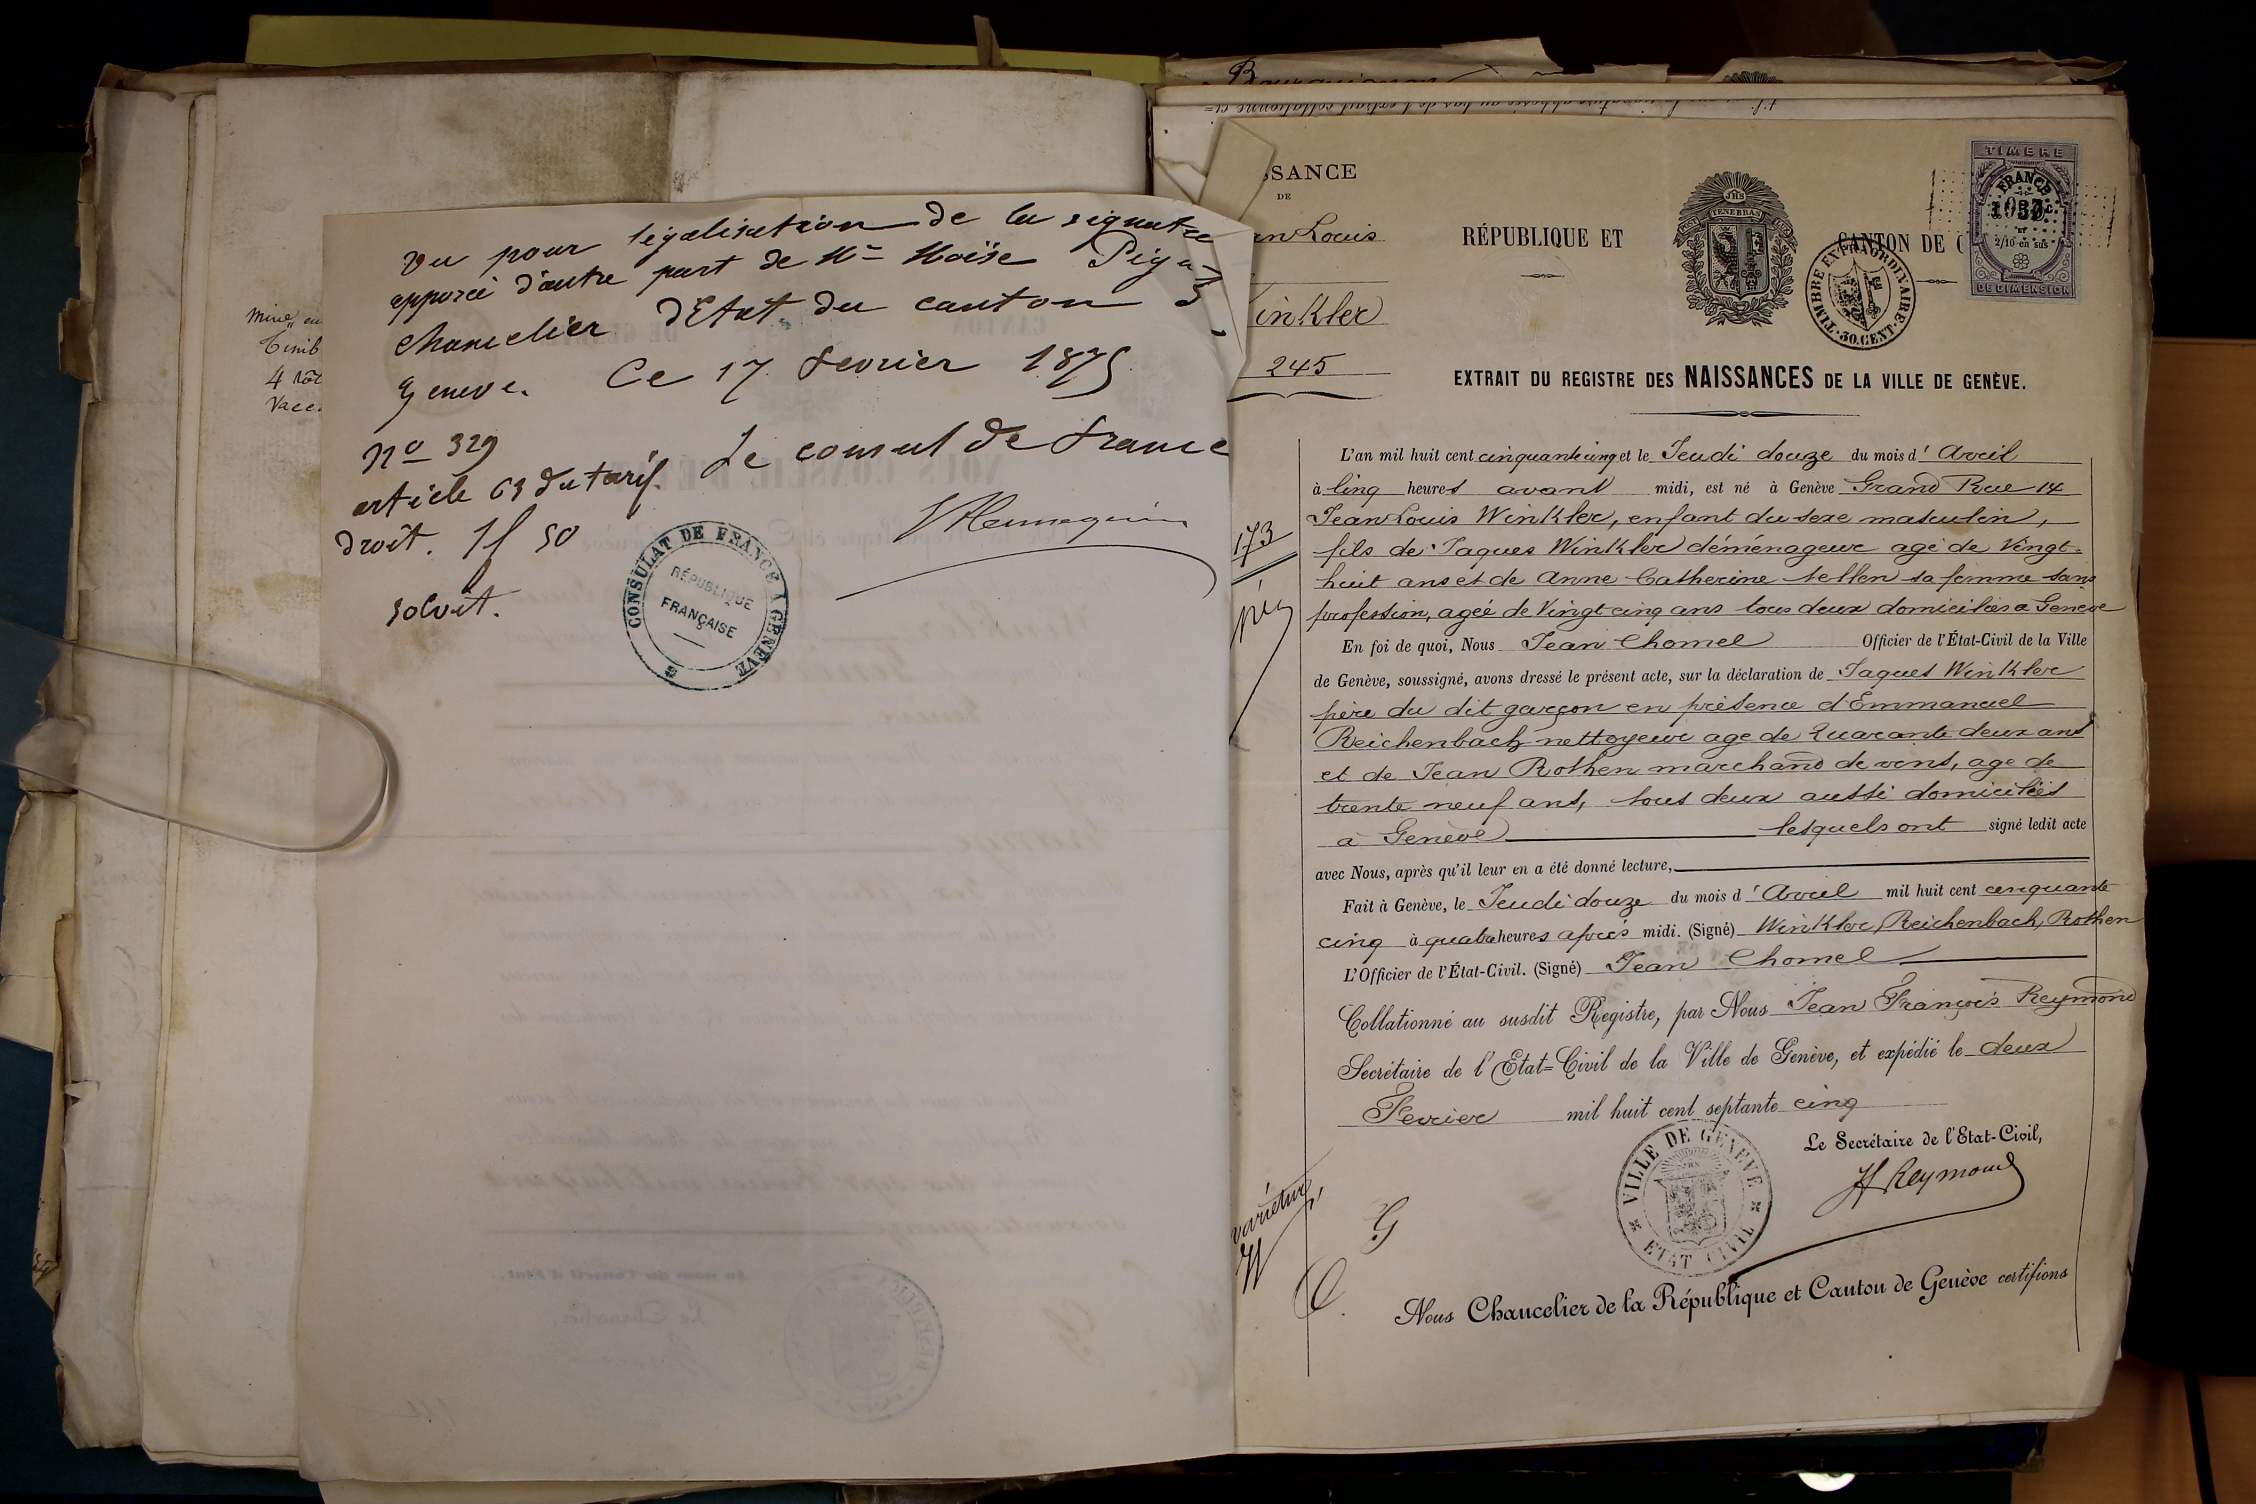 Vu pour légalisation de la signature
apposée d'autre part de Mr Moïse
chancelier d'Etat du canton
Genève. Ce 17 fevrier 1875
No 329
Le consul de France
article 63 du tarif.
droit. 1f 50
solvit.
CONSULAT DE FRANCE À GENEVE
RÉPUBLIQUE
FRANÇAISE
SSANCE
DE
an Louis
inkler
245
RÉPUBLIQUE ET CANTON DE G
JHS
TENEBRAS
TIMBRE EXTRAORDINAIRE
30. CENT.
TIMBRE
FRANCE
2/10 en sus
DE DIMENSION
EXTRAIT DU REGISTRE DES NAISSANCES DE LA VILLE DE GENÈVE.
L'an mil huit cent cinquante cinq et le Jeudi douze du mois d' Avril
à Cinq heures avant midi, est né à Genève Grand Rue 14
Jean Louis Winkler, enfant du sexe masculin,
fils de Jaques Winkler déménageur agé de Vingt-
huit ans et de Anne Catherine Sellen sa femme sans
profession, agée de Vingt cinq ans tous deux domiciliés à Genève
En foi de quoi, Nous Jean Chomel Officier de l'État-Civil de la Ville
de Genève, soussigné, avons dressé le présent acte, sur la déclaration de Jaques Winkler
père du dit garçon en présence d'Emmanuel
Reichenbach nettoyeur age de Quarante deux ans
et de Jean Rothen marchand de vins, age de
trente neuf ans, tous deux aussi domiciliés
à Genève lesquels ont signé ledit acte
avec Nous, après qu'il leur en a été donné lecture,
Fait à Genève, le Jeudi douze du mois d' Avril mil huit cent cinquante
cinq à quatre heures après midi. (Signé) Winkler, Reichenbach, Rothen
L'Officier de l'État-Civil. (Signé) Jean Chomel
Collationné au susdit Registre, par Nous Jean François Reymond
Secrétaire de l'Etat-Civil de la Ville de Genève, et expédié le deux
Fevrier mil huit cent septante cinq
Le Secrétaire de l'Etat-Civil,
JfReymond
VILLE DE GENEVE
ETAT CIVIL
Nous Chancelier de la République et Canton de Genève certifions
173
varietur